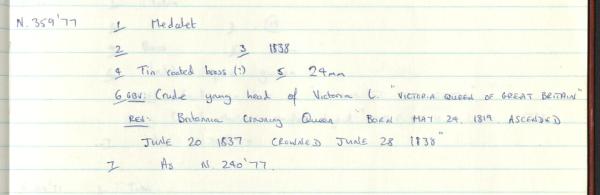 N. 359'77 1 Medalet
2 3 1838
4 Tin coated brass (?) 5 24mm
6 OBV: Crude young head of Victoria L. "VICTORIA QUEEN OF GREAT BRITAIN"
REV: Britannia Crowning Queen "BORN MAY 24, 1819. ASCENDED
JUNE 20 1837 CROWNED JUNE 28 1838"
7 As N. 240'77.